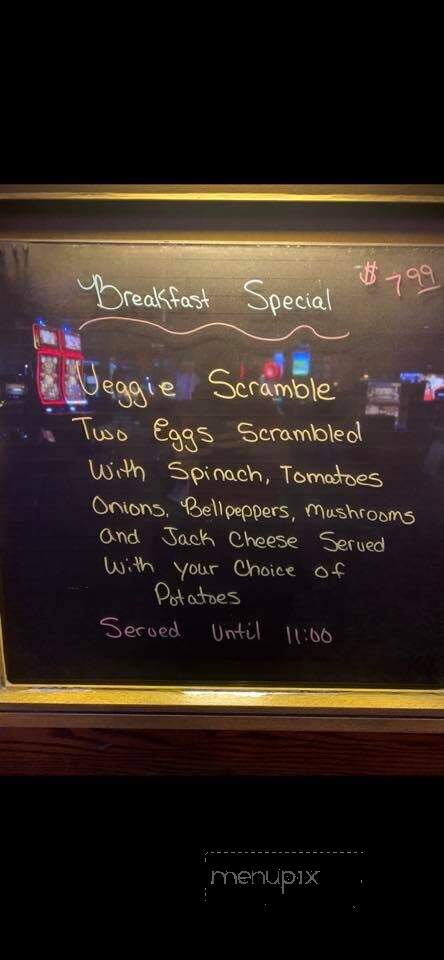 Breakfast Special $7.99
Veggie Scramble
Two Eggs Scrambled
With Spinach, Tomatoes
Onions, Bellpeppers, Mushrooms
and Jack Cheese Served
With your Choice of
Potatoes
Served Until 11:00
menupix